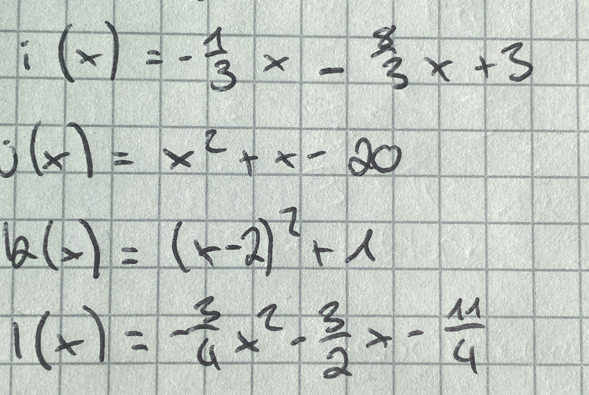 i(x) = -1/3 x - 8/3 x + 3
j(x) = x² + x - 20
k(x) = (x-2)² + 1
l(x) = -3/4 x² - 3/2 x - 11/4